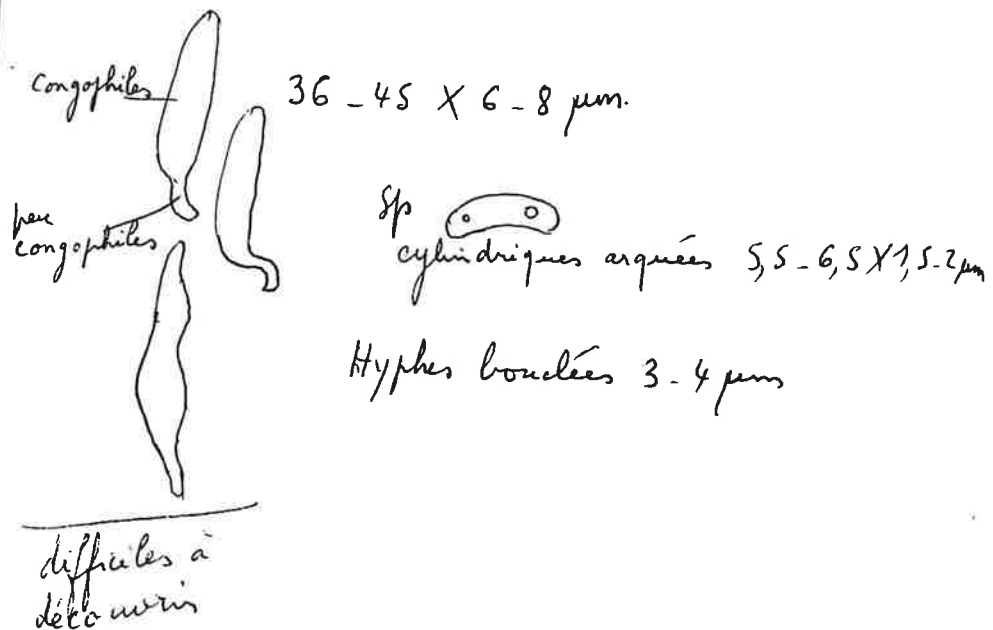 congophiles
36 - 45 X 6 - 8 µm.
peu
congophiles
Sp
cylindriques arquées 5,5 - 6,5 X 1,5 - 2 µm
Hyphes bouclées 3 - 4 µm
difficiles à
découvrir